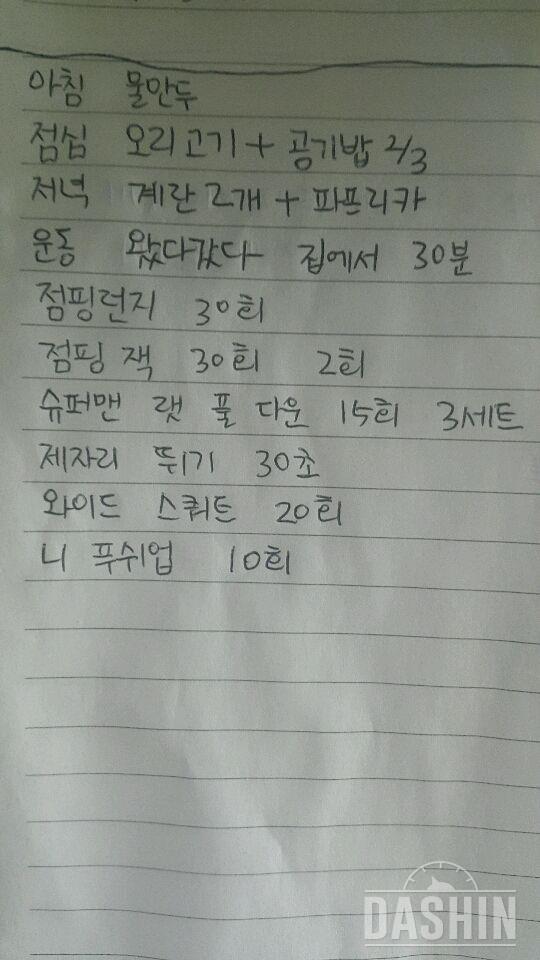 아침 물만두
점심 오리고기 + 공기밥 2/3
저녁 계란 2개 + 파프리카
운동 왔다갔다 집에서 30분
점핑런지 30회
점핑 잭 30회 2회
슈퍼맨 랫 풀 다운 15회 3세트
제자리 뛰기 30초
와이드 스쿼트 20회
니 푸쉬업 10회
DASHIN